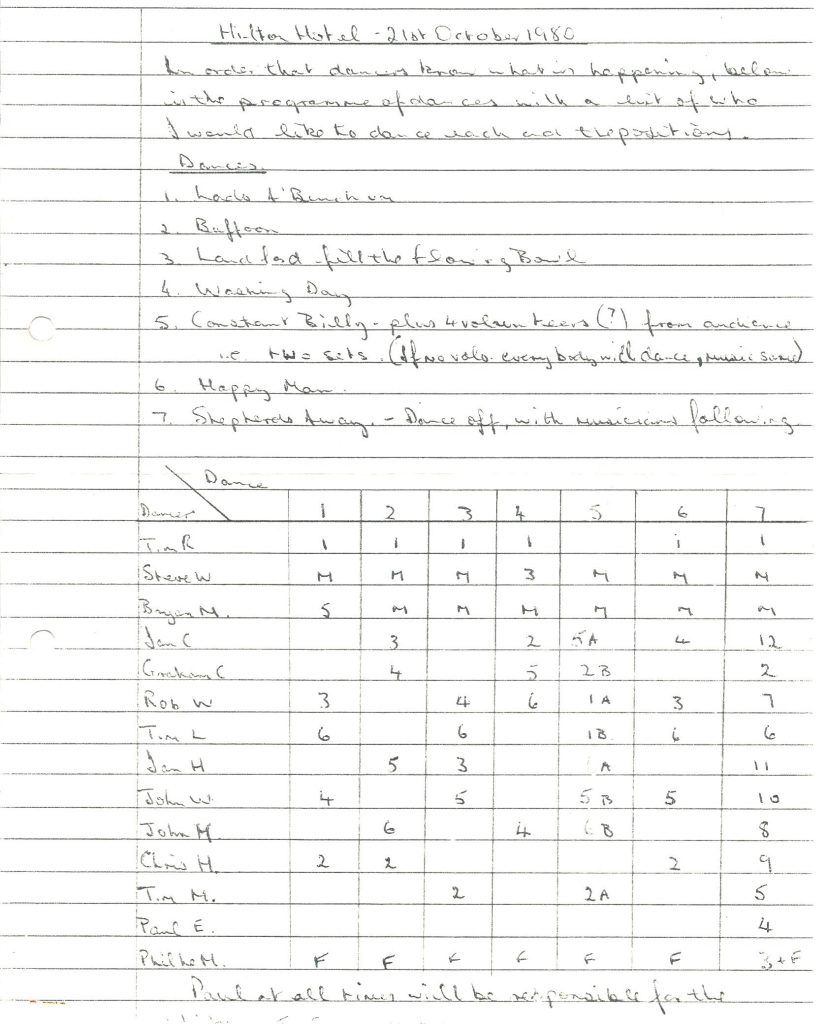 Hilton Hotel - 21st October 1980
In order that dancers know what is happening, below
is the programme of dances with a list of who
I would like to dance each and the positions.
Dances.
1. Lads A'Bunchum
2. Buffoon
3. Landlord fill the flowing Bowl
4. Washing Day
5. Constant Billy - plus 4 volunteers (?) from audience
i.e. two sets. (If no vols. everybody will dance, music same)
6. Happy Man.
7. Shepherds Away. - Dance off, with musicians following.
Dance
Dancer 1 2 3 4 5 6 7
Tim R 1 1 1 1 1 1
Steve W M M M 3 M M M
Bryan M. 5 M M M M M M
Ian C 3 2 5A 4 12
Graham C 4 5 2B 2
Rob W 3 4 6 1A 3 7
Tim L 6 6 1B 6 6
Ian H 5 3 A 11
John W. 4 5 5B 5 10
John M 6 4 6B 8
Chris H. 2 2 2 9
Tim M. 2 2A 5
Paul E. 4
Phil M. F F F F F F 3+F
Paul at all times will be responsible for the